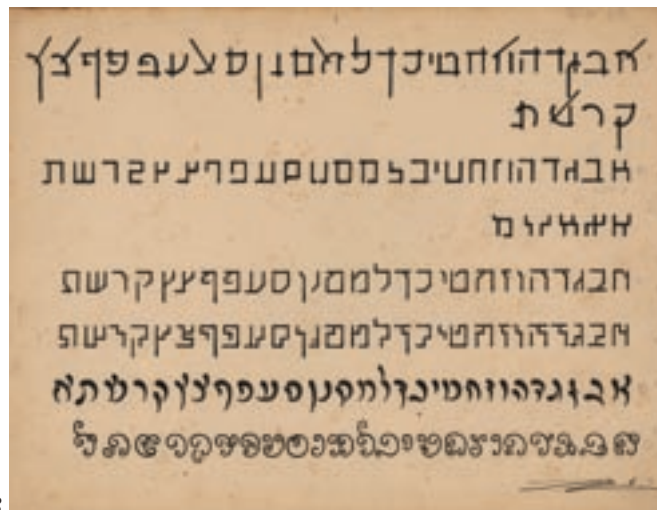 אבגדהוזחטיכךלמםנןסצעפפףצץ
קרשת
אבגדהוזחטיכלמסנםעפףצץקרשת
אבגדהוזחטיכךלמםנןסעפףצץקרשת
אבגדהוזחטיכךלמםנןסעפףצץקרשת
אבגדהוזחטיכךלמםנןסעפףצץקרשתא